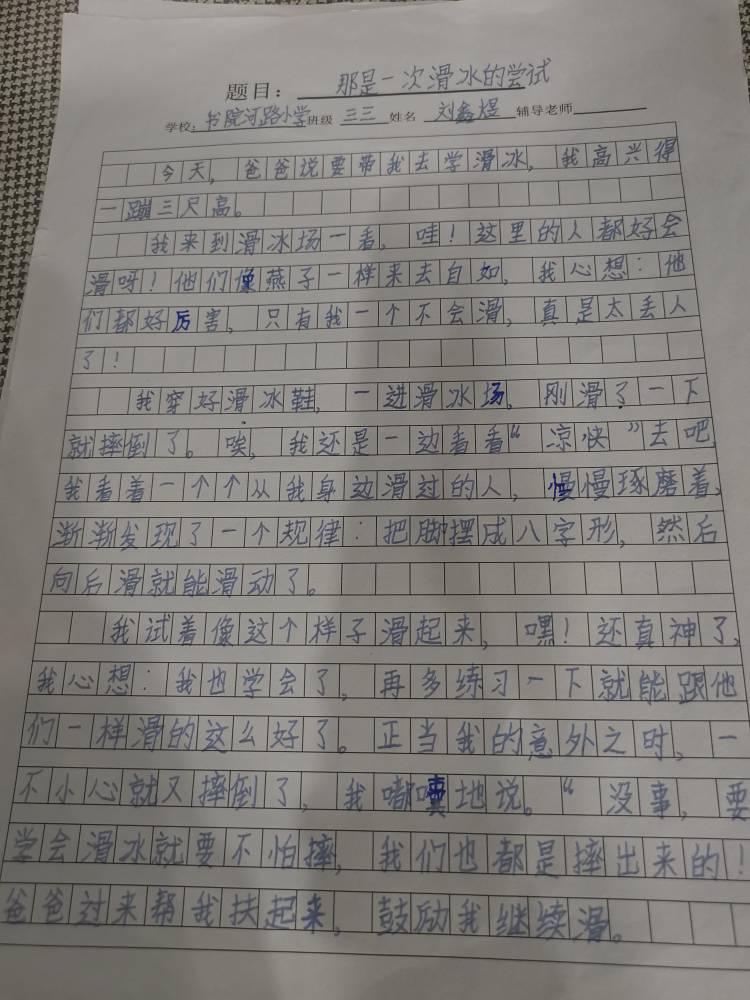 题目：那是一次滑冰的尝试
学校：书院河路小学班级 三三 姓名 刘鑫煜 辅导老师
今天，爸爸说要带我去学滑冰，我高兴得
一蹦三尺高。
我来到滑冰场一看，哇！这里的人都好会
滑呀！他们像燕子一样来去自如，我心想：他
们都好厉害，只有我一个不会滑，真是太丢人
了！
我穿好滑冰鞋，一进滑冰场，刚滑了一下
就摔倒了。唉，我还是一边看看“凉快”去吧，
我看着一个个从我身边滑过的人，慢慢琢磨着，
渐渐发现了一个规律：把脚摆成八字形，然后
向后滑就能滑动了。
我试着像这个样子滑起来，嘿！还真神了，
我心想：我也学会了，再多练习一下就能跟他
们一样滑的这么好了。正当我的意外之时，一
不小心就又摔倒了，我嘟囔地说。“没事，要
学会滑冰就要不怕摔，我们也都是摔出来的！
爸爸过来帮我扶起来，鼓励我继续滑。